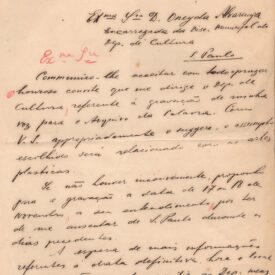 Exma Sra D. Oneyda Alvarenga
Encarregada da Disc. Municipal do
Dep. de Cultura
S. Paulo
Exma Sra
Communico-lhe acceitar com todo prazer
o honroso convite que me dirige o Dep. de
Cultura, referente á gravação de minha
voz para o Arquivo da Palavra. Como
V. S. appropriadamente suggere, o assumpto
escolhido será relacionado com as artes
plasticas.
Se não houver inconveniente, proponho
para a gravação a data de 17 ou 18 de
Novembro, a seu entendimento, por ter
de me ausentar de S. Paulo durante os
dias precedentes.
A espera de mais informações
referentes á data definitiva, hora e local